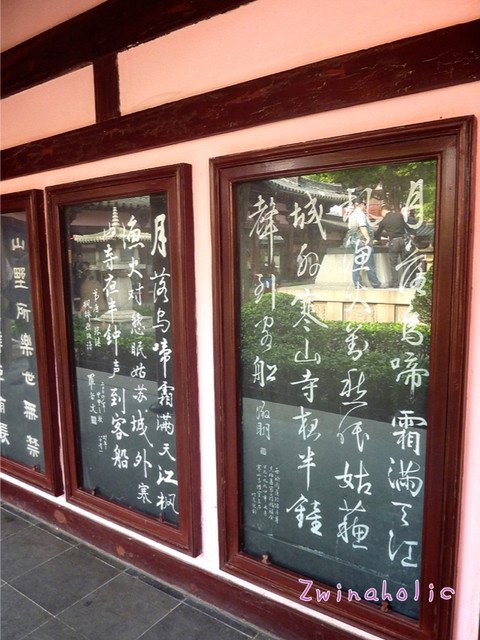 月落烏啼霜滿天江
楓漁火對愁眠姑蘇
城外寒山寺夜半鐘
聲到客船
月落烏啼霜滿天江楓
漁火对愁眠姑苏城外寒
山寺夜半钟声到客船
羅哲文
山墅所樂世無禁
Zwinaholic